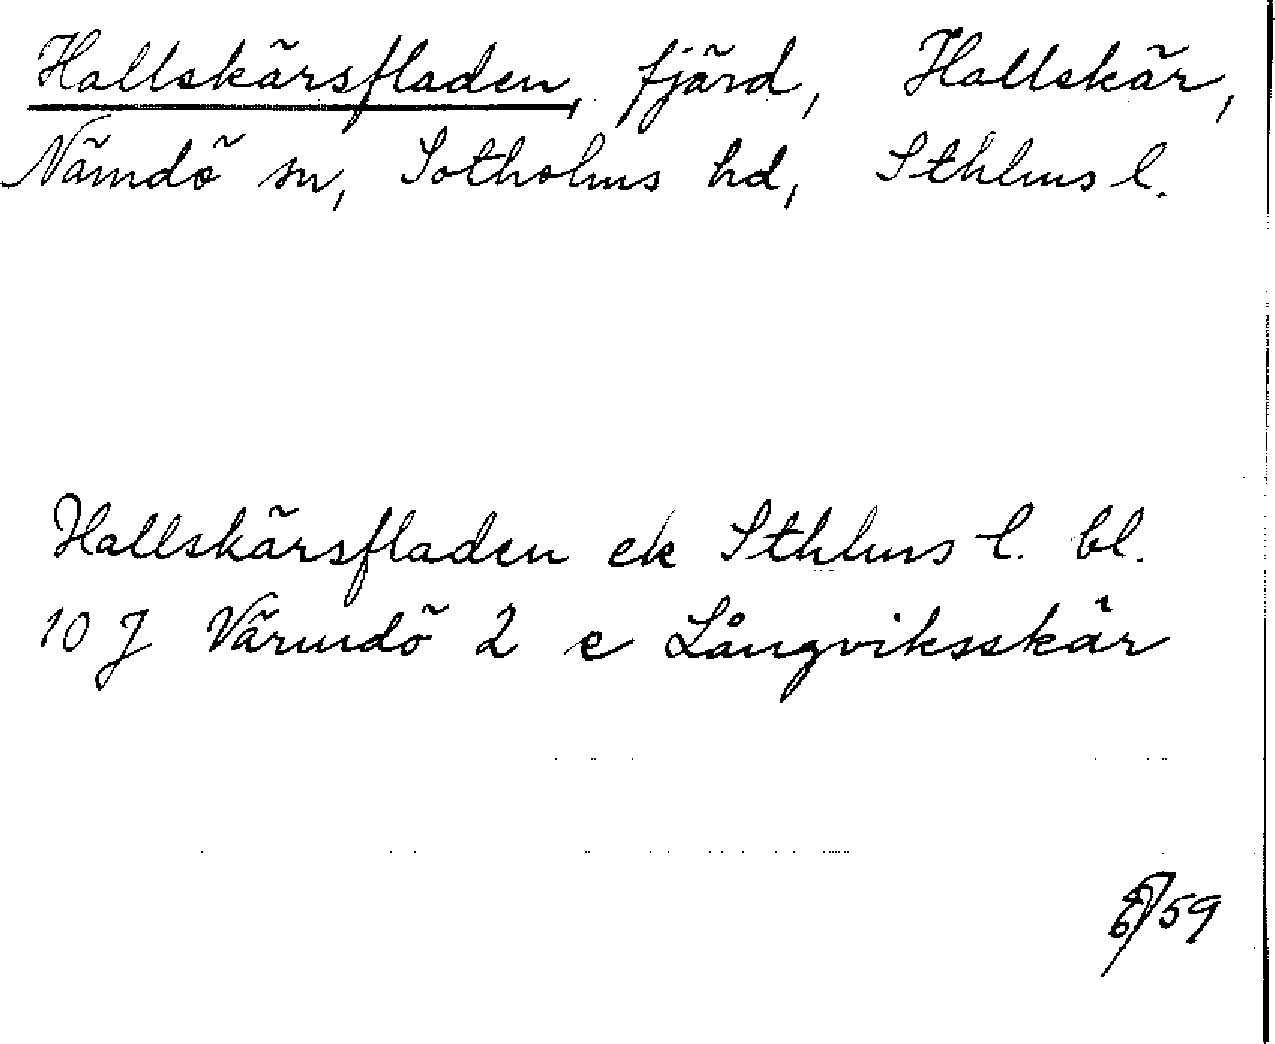 Hallskärsfladen, fjärd, Hallskär,
Nämdö sn, Sotholms hd, Sthlms l.
Hallskärsfladen ek Sthlms l. bl.
10 J Värmdö 2 c Långviksskär
59